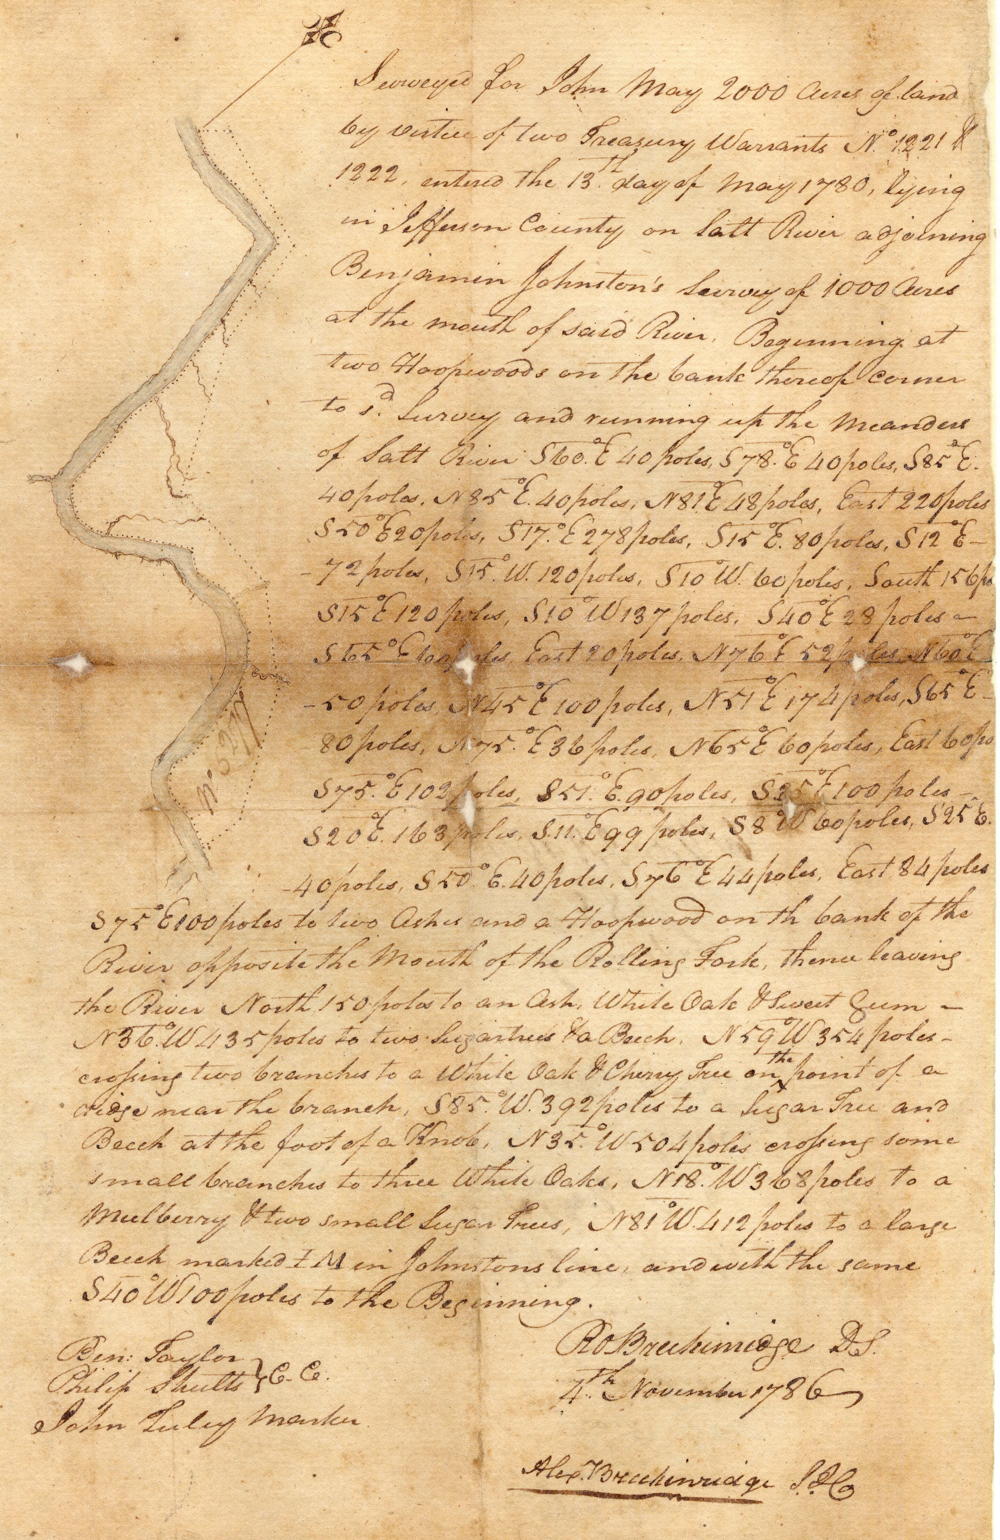 Surveyed for John May 2000 Acres of land
by virtue of two Treasury Warrants No. 1221 &
1222, entered the 13th day of May 1780, lying
in Jefferson County on Salt River adjoining
Benjamin Johnston's Survey of 1000 Acres
at the mouth of said River. Beginning at
two Hoopwoods on the bank thereof corner
to sd. Survey and running up the Meanders
of Salt River S60.°E 40 poles, S78.°E 40 poles, S85°E.
40 poles, N85°E. 40 poles, N81°E 48 poles, East 220 poles
S50°E 20 poles, S17.°E 278 poles, S15°E. 80 poles, S12°E-
-72 poles, S15.°W. 120 poles, S10°W. 60 poles, South 156 po
S15°E 120 poles, S10°W 137 poles, S40°E 28 poles -
S65°E poles East 20 poles, N76°E 52 poles N60°E
-50 poles, N45°E 100 poles, N51°E 174 poles, S65°E-
80 poles, N75.°E 36 poles, N65°E 60 poles, East 60 po
S75.°E 102 poles, S51.°E. 90 poles, S25°E 100 poles -
S20°E. 163 poles, S.11.°E 99 poles, S8°W 60 poles, S25°E.
-40 poles, S50°E. 40 poles, S76°E 44 poles, East 84 poles
S75°E 100 poles to two Ashes and a Hoopwood on th bank of the
River opposite the Mouth of the Rolling Fork, thence leaving
the River North 150 poles to an Ash, White Oak & Sweet Gum -
N36.°W 435 poles to two Sugartrees & a Beech. N59°W 354 poles-
crossing two branches to a White Oak & Cherry Tree on the point of a
ridge near the branch, S85.°W. 392 poles to a Sugar Tree and
Beech at the foot of a Knob, N35.°W 504 poles crossing some
small branches to three White Oaks, N18.°W 368 poles to a
Mulberry & two small Sugar Trees, N81°W. 412 poles to a large
Beech marked I M in Johnstons line, and with the same
S40°W 100 poles to the Beginning.
Ro Breckinridge D S.
4th. November 1786
Ben: Taylor
Philip Shults } C. C.
John Tuley Marker
Alex. Breckinridge S. J. Co